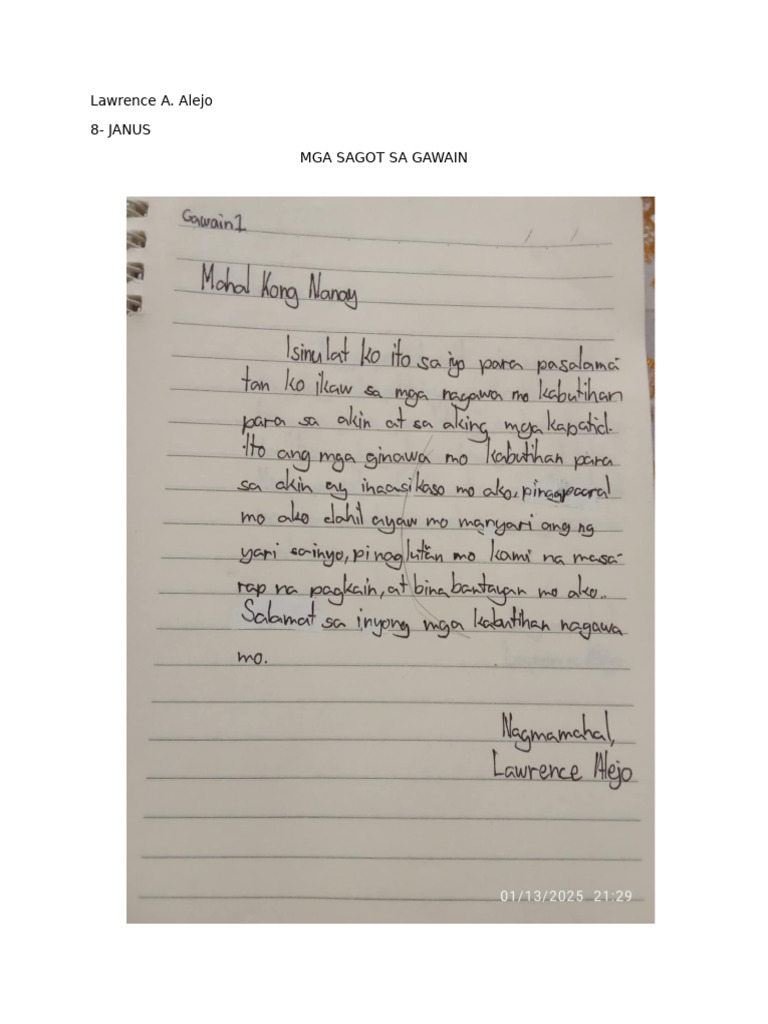 Lawrence A. Alejo
8- JANUS
MGA SAGOT SA GAWAIN
Gawain 1
/ /
Mahal Kong Nanay
Isinulat ko ito sa iyo para pasalama-
tan ko ikaw sa mga nagawa mo kabutihan
para sa akin at sa aking mga kapatid.
Ito ang mga ginawa mo kabutihan para
sa akin ay inaasikaso mo ako, pinagpaaral
mo ako dahil ayaw mo manyari ang ng
yari sainyo, pinaglutan mo kami na masa-
rap na pagkain, at binabantayan mo ako..
Salamat sa inyong mga kabutihan nagawa
mo.
Nagmamahal,
Lawrence Alejo
01/13/2025 21:29